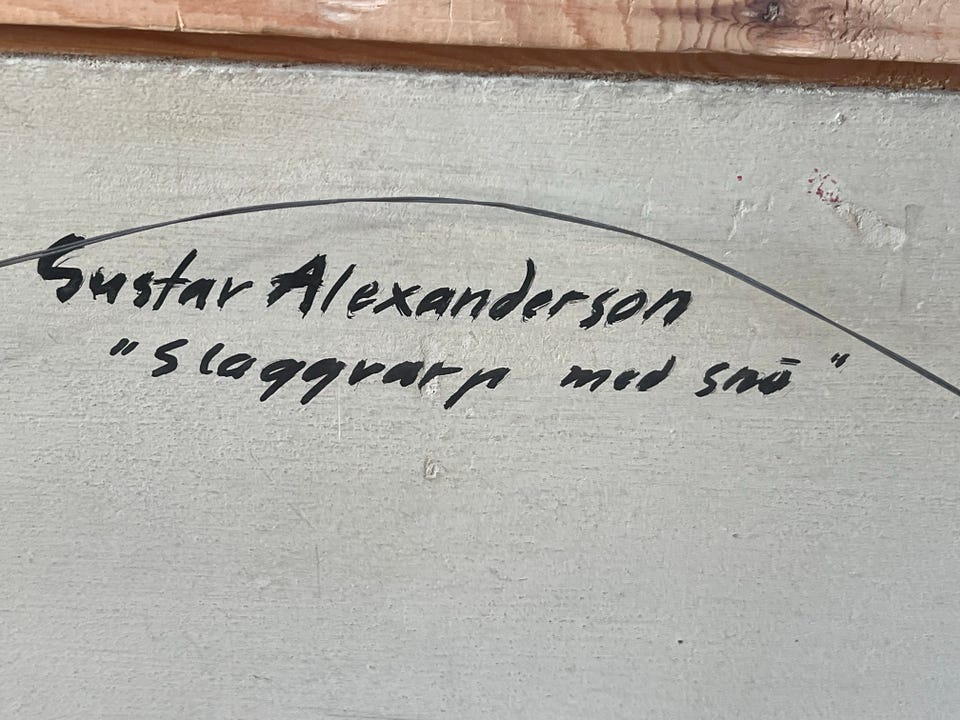 Gustav Alexanderson
"Slaggvarp med snö"